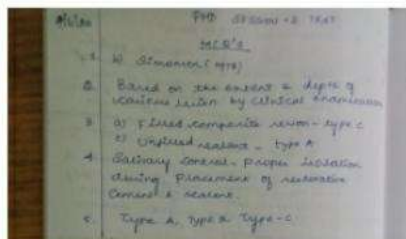 PHD SESSION - 2 TEST
MCQ'S
1. b) Simonsen (1978)
2. Based on the extent & depth of
carious lesion by clinical examination
3. a) Filled composite resin - type C
c) Unfilled sealant - type A
4. Salivary control - proper isolation
during placement of restoration
cement & sealant.
5. Type A, Type B Type - C